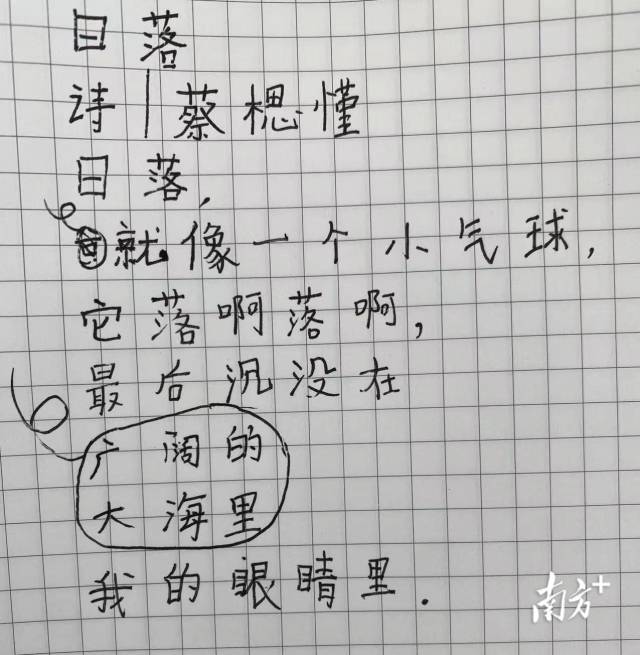 日落
诗|蔡楒慬
日落,
就像一个小气球,
它落啊落啊,
最后沉没在
广阔的
大海里
我的眼睛里.
南方+